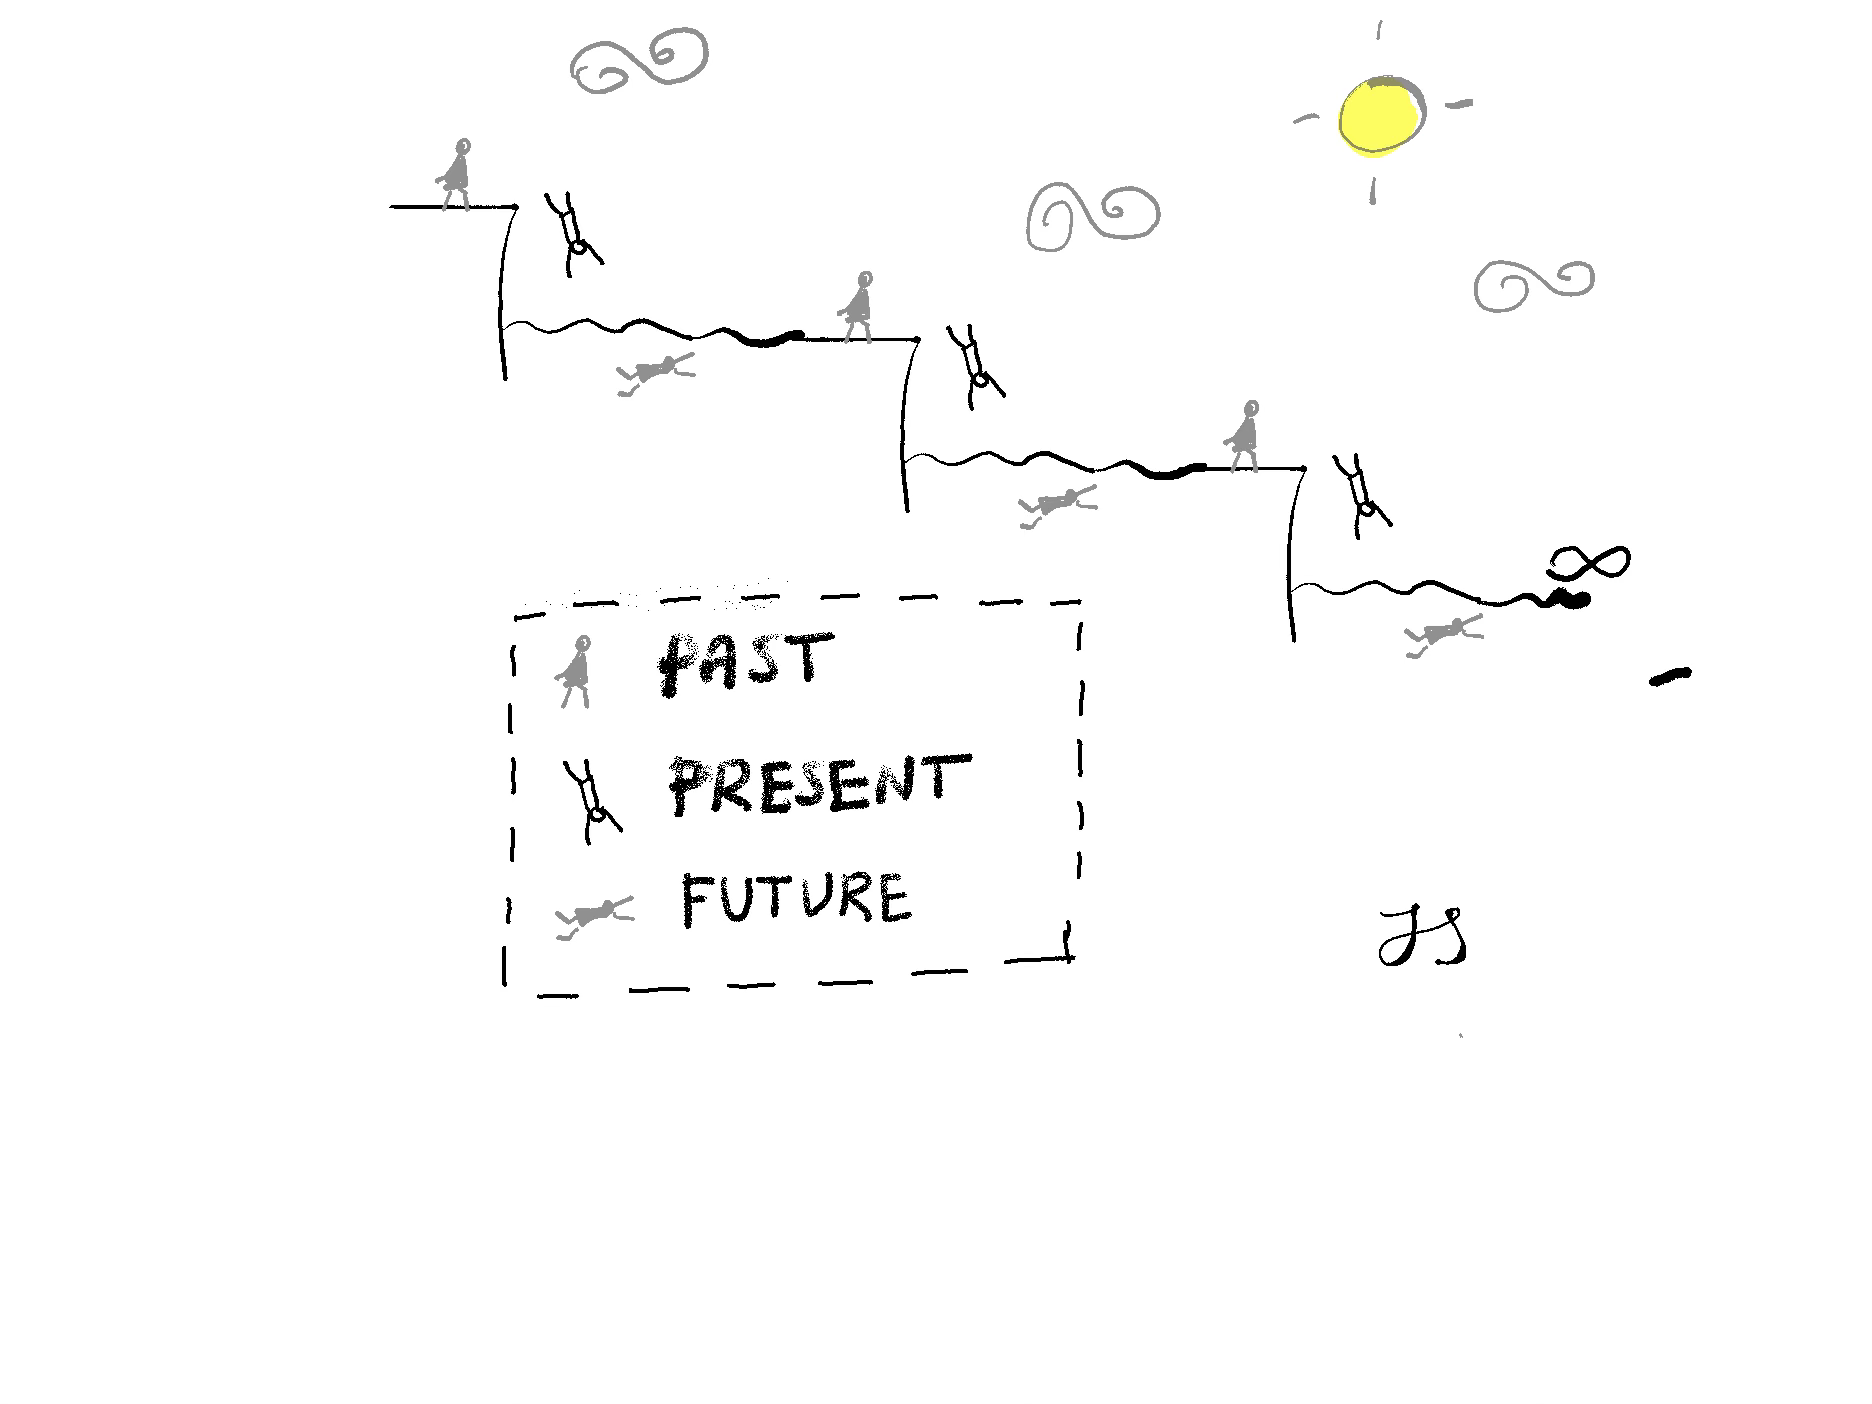 ∞
PAST
PRESENT
FUTURE
JS